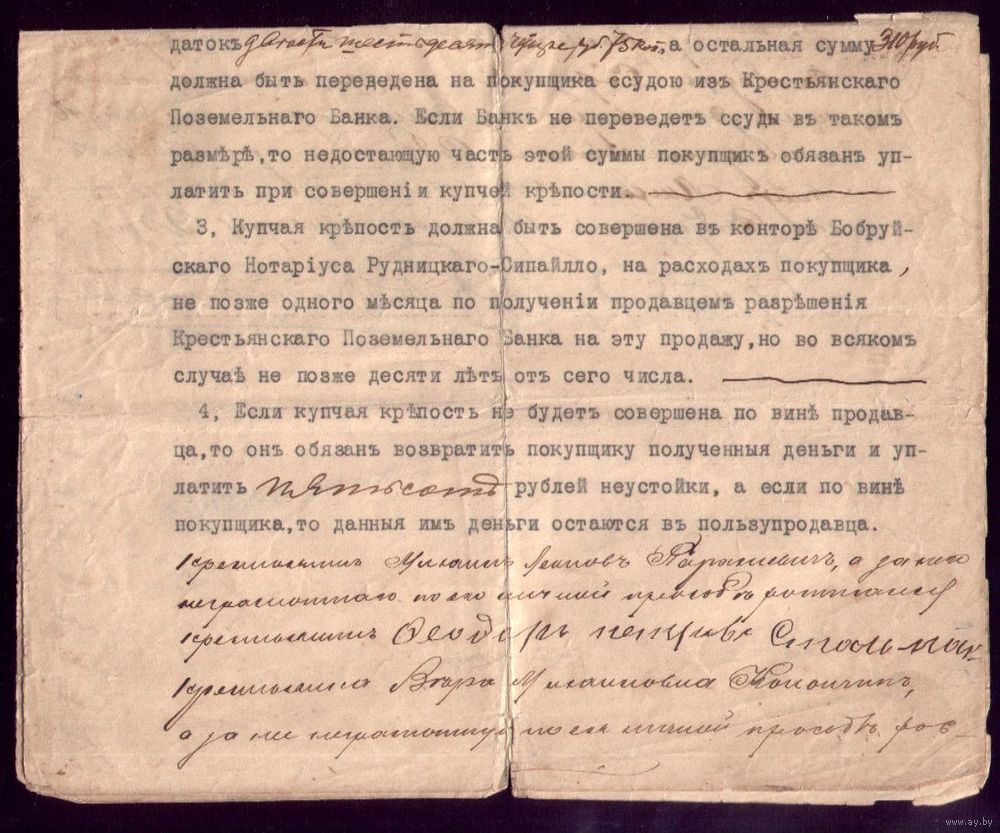 датокъ двѣсти шестьдесят четыре руб. 75 коп., а остальная сумму 310 руб
должна быть переведена на покупщика ссудою изъ Крестьянскаго
Поземельнаго Банка. Если Банкъ не переведетъ ссуды въ такомъ
размѣрѣ,то недостающую часть этой суммы покупщикъ обязанъ уп-
латить при совершеніи купчей крѣпости.
3, Купчая крѣпость должна быть совершена въ конторѣ Бобруй-
скаго Нотаріуса Рудницкаго-Сипайлло, на расходахъ покупщика,
не позже одного мѣсяца по полученіи продавцемъ разрѣшенія
Крестьянскаго Поземельнаго Банка на эту продажу,но во всякомъ
случаѣ не позже десяти лѣтъ отъ сего числа.
4, Если купчая крѣпость не будетъ совершена по винѣ продав-
ца,то онъ обязанъ возвратить покупщику полученныя деньги и уп-
латить пятьсотъ рублей неустойки, а если по винѣ
покупщика,то данныя имъ деньги остаются въ пользупродавца.
Крестьянинъ Михаилъ Леоновъ, а за него
неграмотнаго по его личной прособѣ росписался
крестьянинъ Ѳеодоръ Стальмах
Крестьянка Вѣра Михаиловна
а за нее неграмотную по ея личной прособѣ рос-
www.ay.by